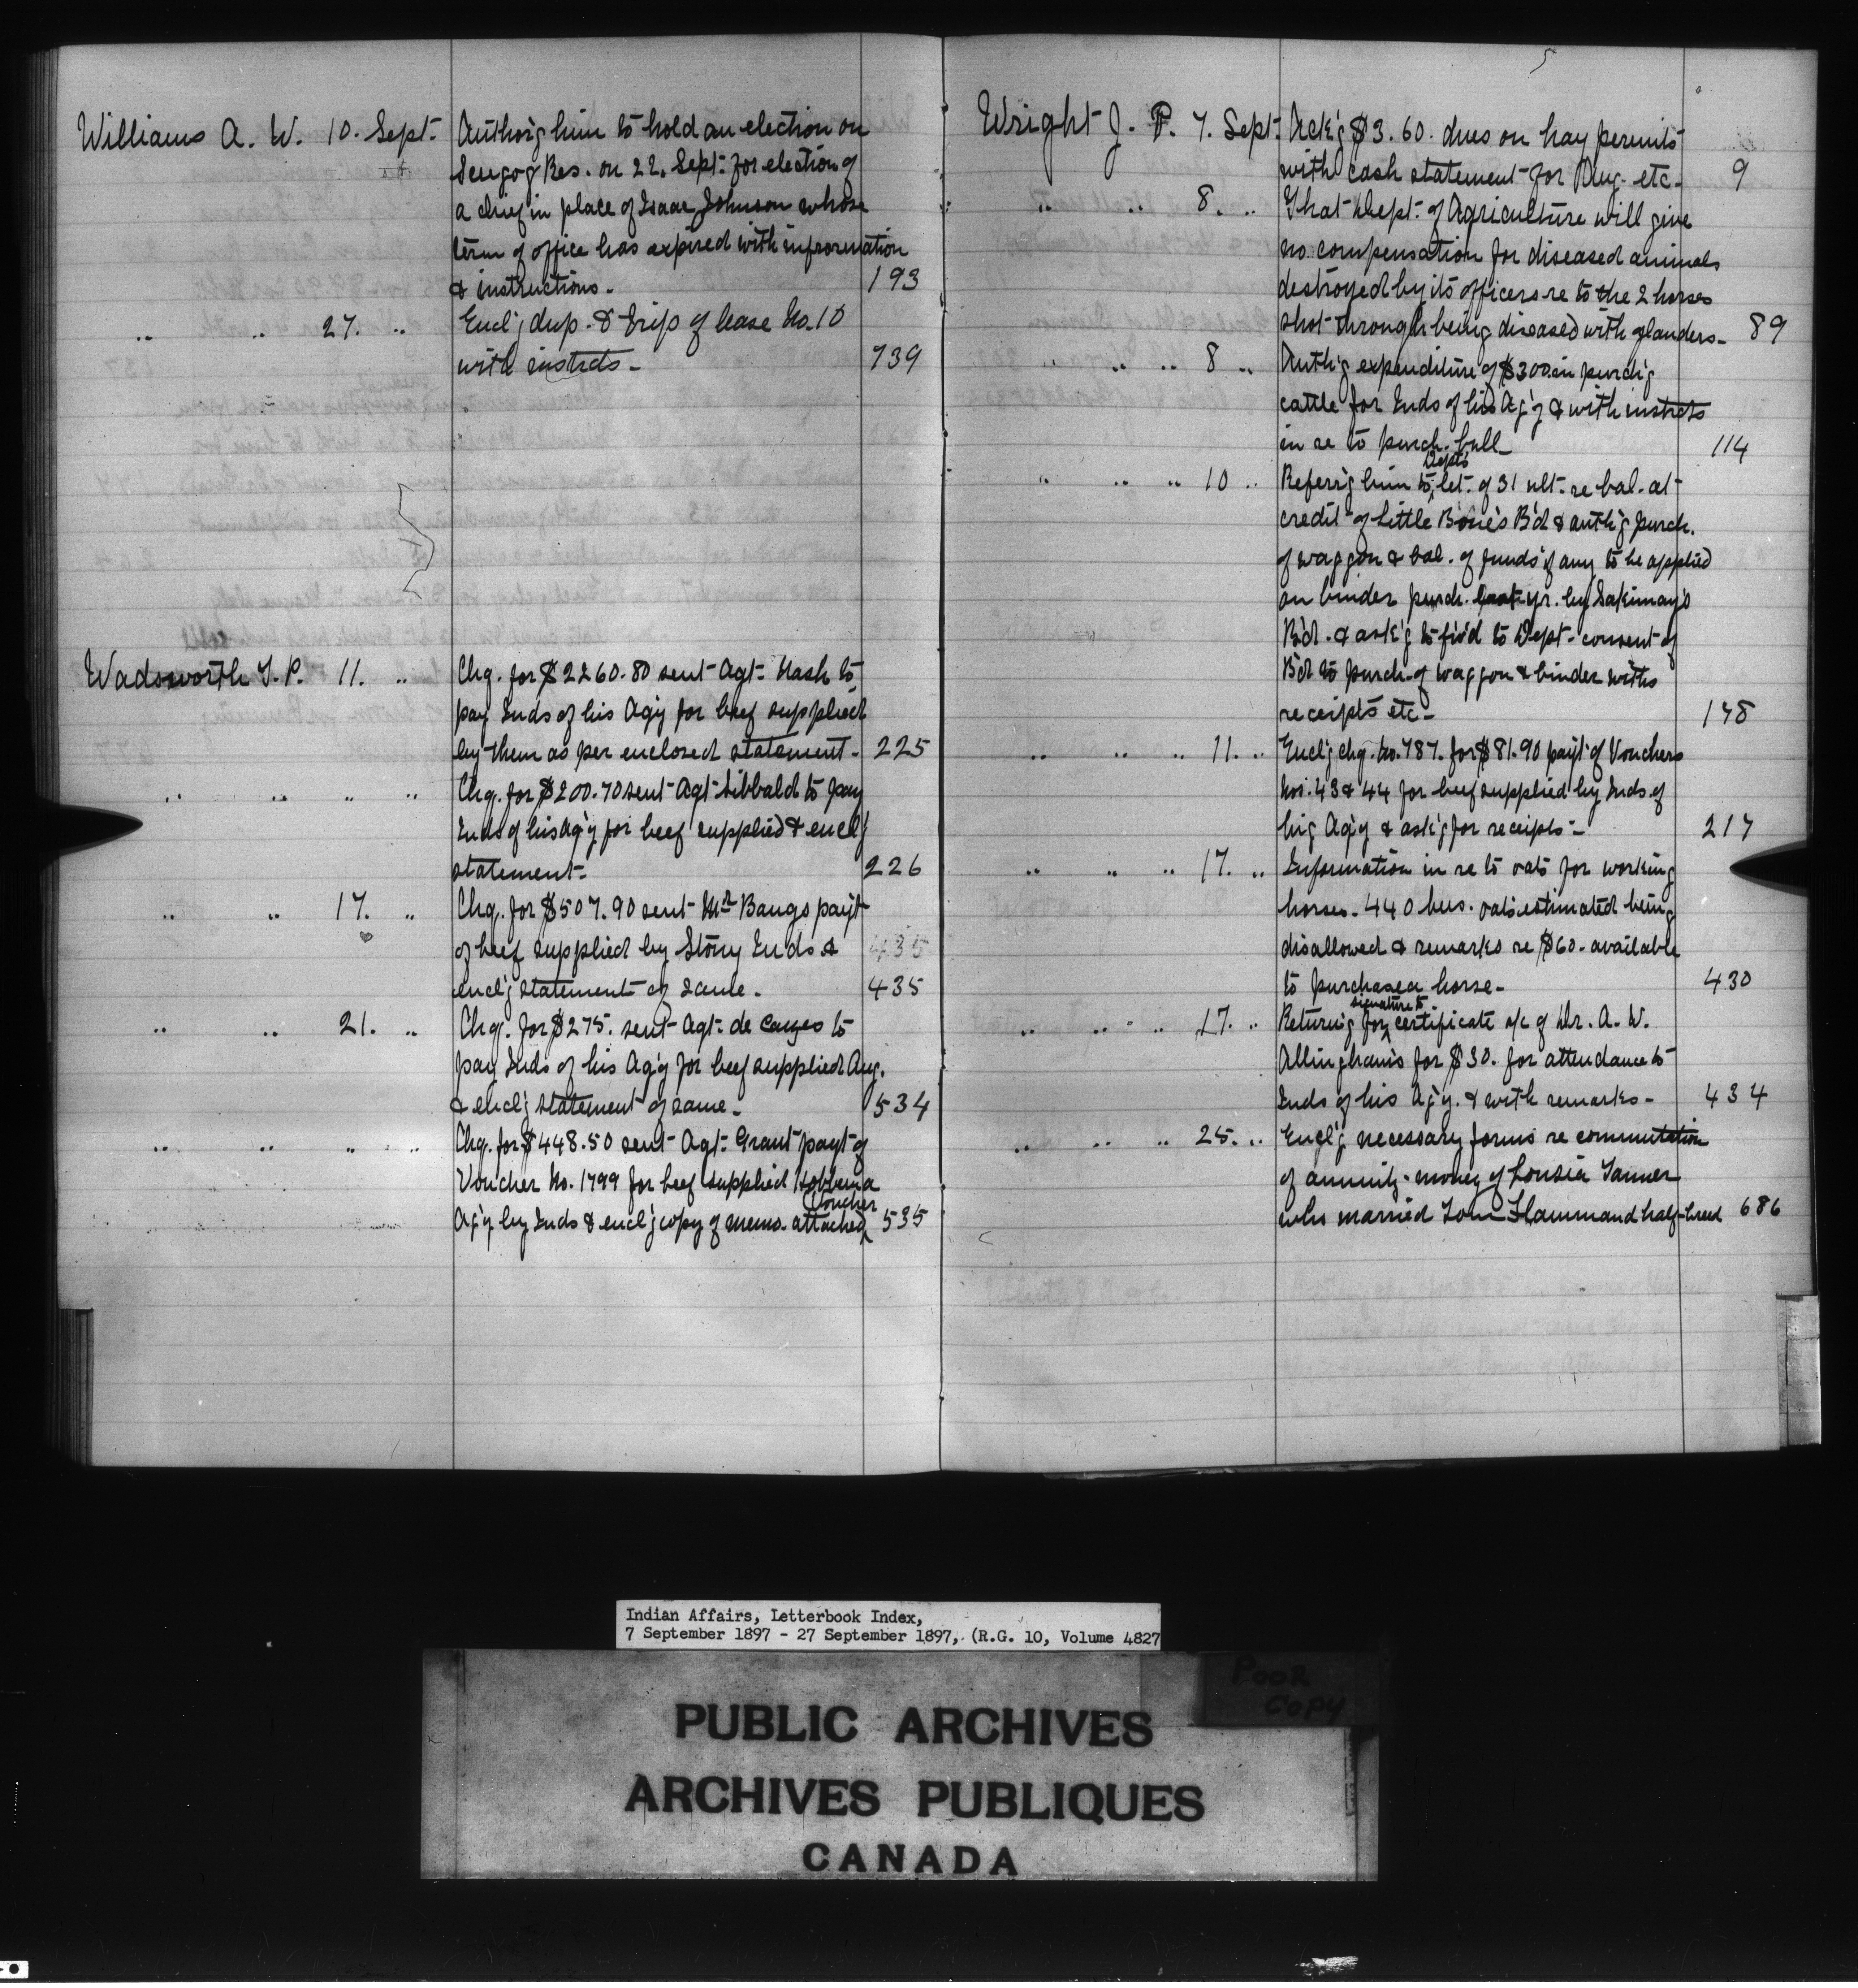 Williams A. W. 10. Sept. Author'g him to hold an election on
Scugog Res. on 22. Sept. for election of
a chief in place of Isaac Johnson whose
term of office has expired with information
& instructions. 193
" " 27. " Encl'g dup. & trip of lease No. 10
with instrcts. 739
Wadsworth T. P. 11. " Chq. for $2260.80 sent Agt. Nash to
pay Inds of his Ag'y for beef supplied
by them as per enclosed statement. 225
" " " " Chq. for $200.70 sent Agt. Sibbald to pay
Inds of his Ag'y for beef supplied & encl'g
statement. 226
" " 17. " Chq. for $507.90 sent Mr Bangs pay't
of beef supplied by Stony Inds &
encl'g statement of same. 435
" " 21. " Chq. for $275. sent Agt. de Cazes to
pay Inds of his Ag'y for beef supplied Aug.
& encl'g statement of same. 534
" " " " Chq. for $448.50 sent Agt. Grant pay't of
Voucher No. 1799 for beef supplied Hobbema
Voucher
Ag'y by Inds & encl'g copy of memo. attached 535
5
Wright J. P. 7. Sept. Ack'g $3.60. dues on hay permits
with cash statement for Aug. etc. 9
" " 8. " That Dept. of Agriculture will give
no compensation for diseased animals
destroyed by its officers re to the 2 horses
shot through being diseased with glanders. 89
" " " 8 " Auth'g expenditure of $300 in purch'g
cattle for Inds of his Ag'y & with instrcts
in re to purch. bull. 114
Dept's
" " " 10 " Referr'g him to let. of 31 ult. re bal. at
credit of Little Bone's B'd & auth'g purch.
of waggon & bal. of funds if any to be applied
on binder purch. last yr. by Sakimay's
B'd. & ask'g to fw'd to Dept. consent of
B'd to purch. of waggon & binder with
receipts etc. 148
" " " 11. " Encl'g chq. No. 787. for $81.90 pay't of Vouchers
Nos. 43 & 44 for beef supplied by Inds. of
his Ag'y & ask'g for receipts. 217
" " " 17. " Information in re to oats for working
horses. 440 bus. oats estimated being
disallowed & remarks re $60. available
to purchase a horse. 430
signature to
" " " 17. " Return'g for certificate a/c of Dr. A. W.
Allingham's for $30. for attendance to
Inds of his Ag'y. & with remarks. 434
" " " 25. " Encl'g necessary forms re commutation
of annuity money of Lousia Tanner
who married Tom Flammand half-breed 686
Indian Affairs, Letterbook Index,
7 September 1897 - 27 September 1897, (R.G. 10, Volume 4827
POOR
COPY
PUBLIC ARCHIVES
ARCHIVES PUBLIQUES
CANADA